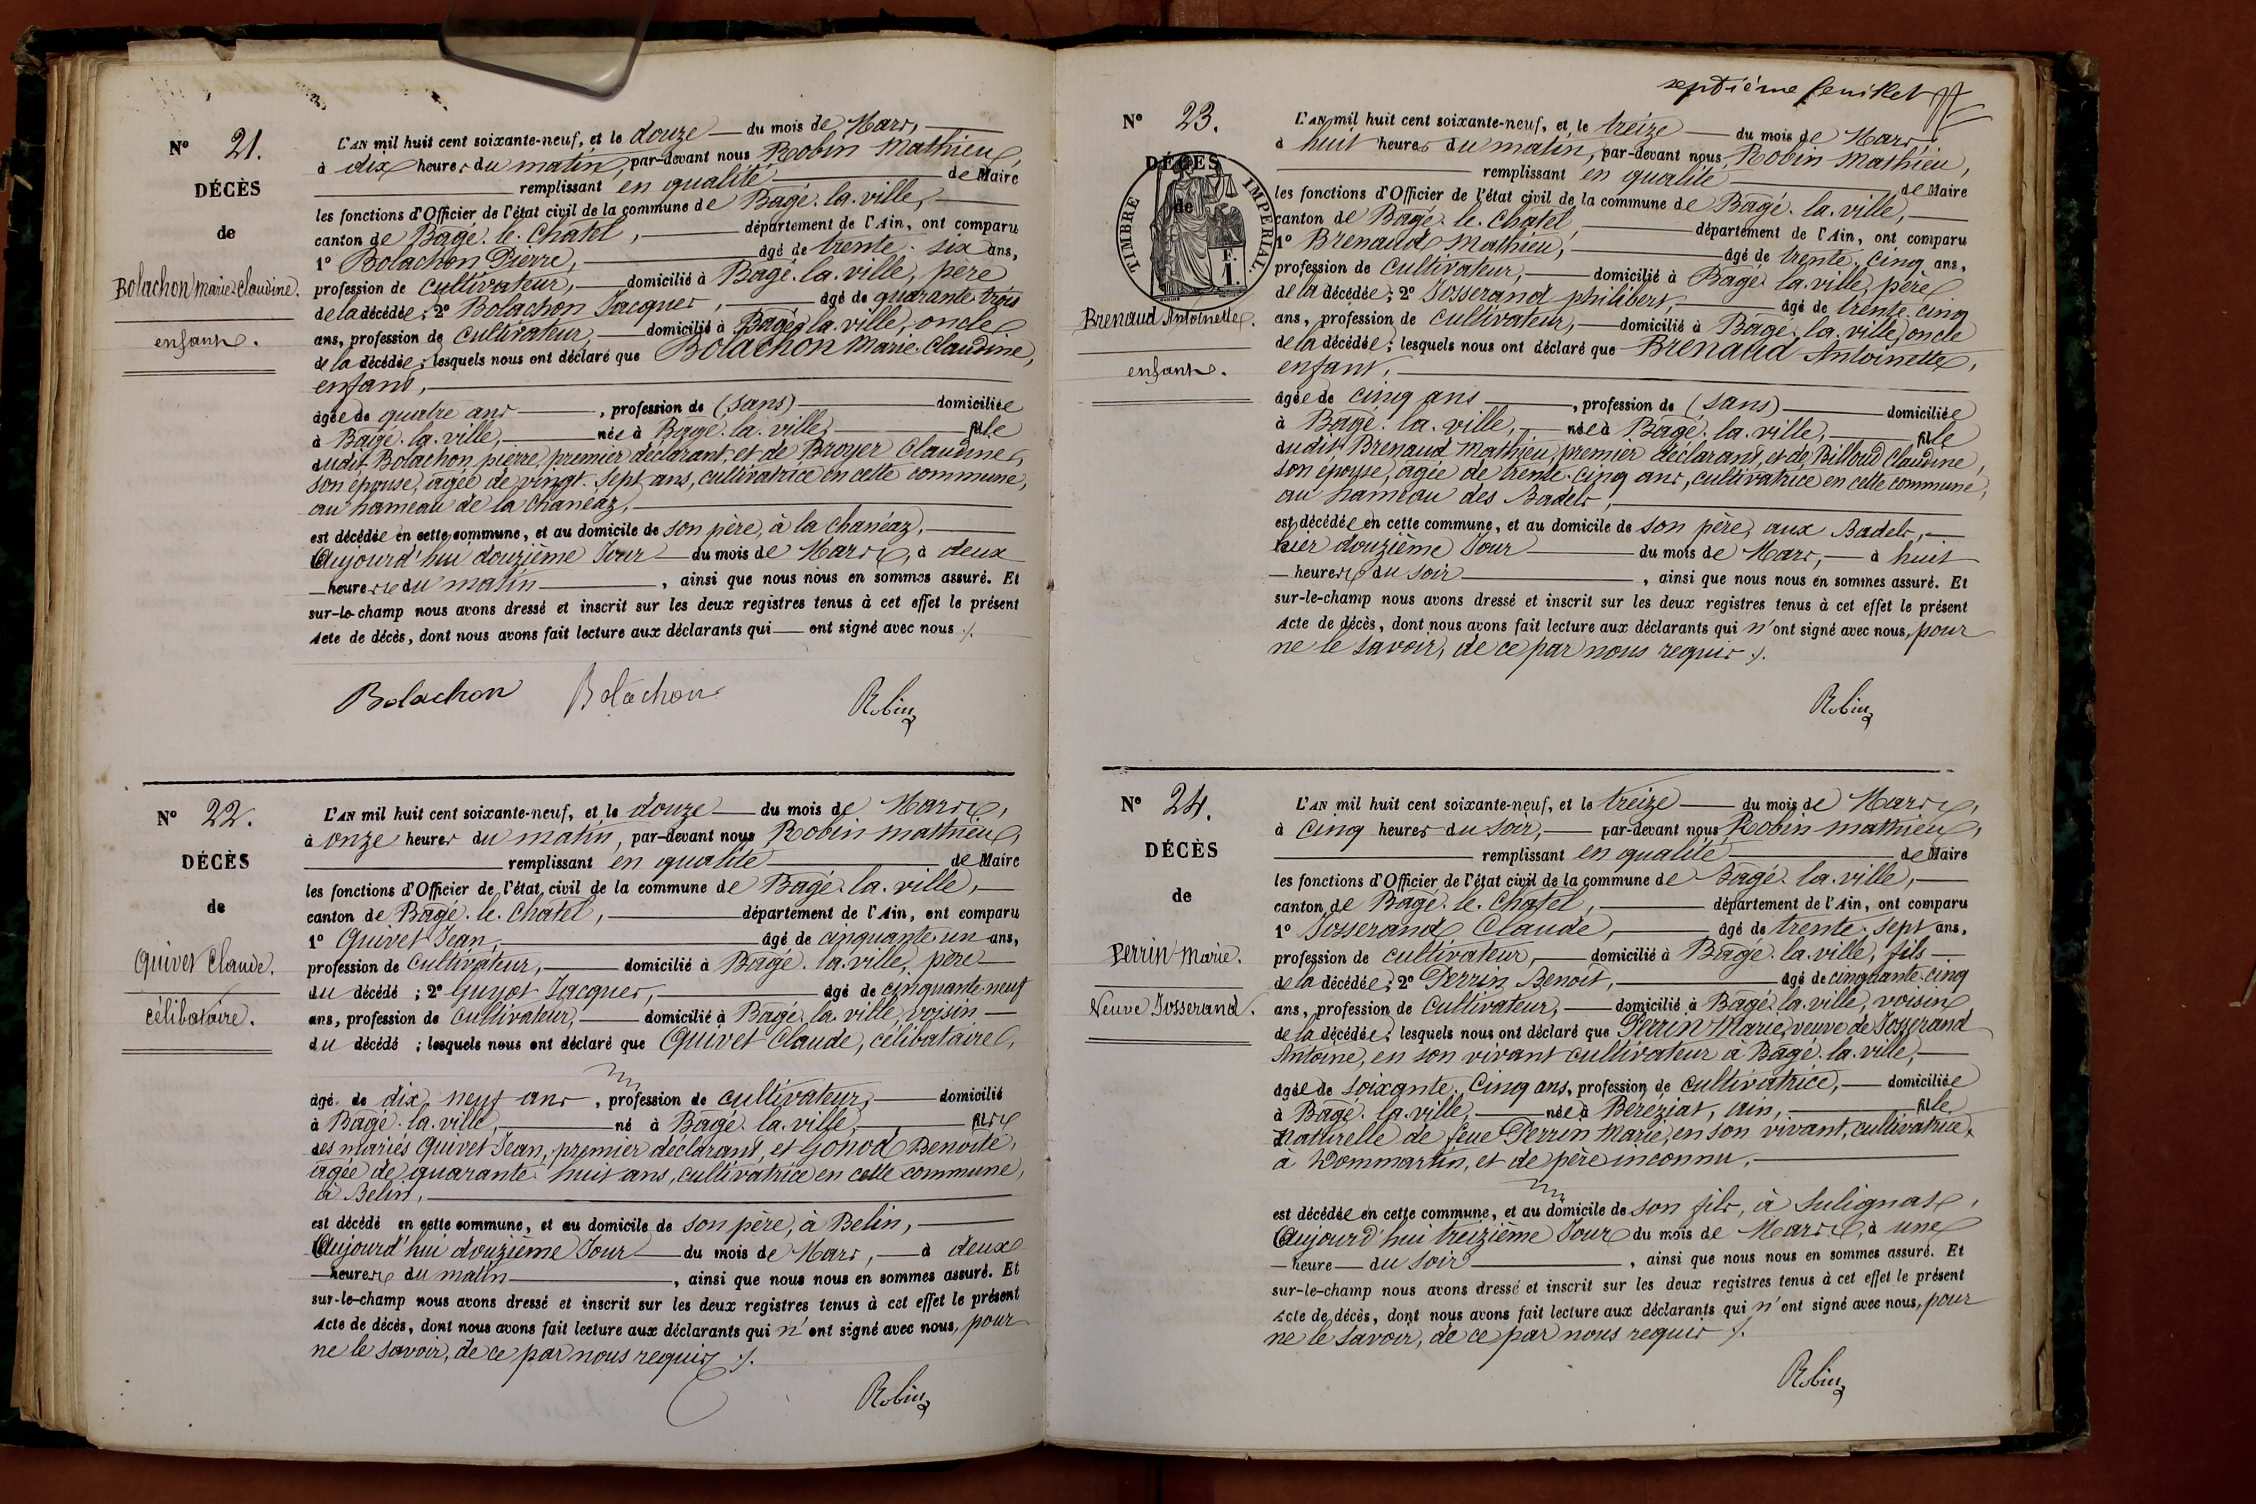 N° 21.
DÉCÈS
de
Bolachon Marie Claudine.
enfant.
L'AN mil huit cent soixante-neuf, et le douze du mois de Mars,
à dix heures du matin, par-devant nous Robin Mathieu,
remplissant en qualité de Maire
les fonctions d'Officier de l'état civil de la commune de Bagé-la-ville,
canton de Bagé-le-Chatel, département de l'Ain, ont comparu
1° Bolachon Pierre, âgé de trente-six ans,
profession de cultivateur, domicilié à Bagé-la-ville, père
de la décédée ; 2° Bolachon Jacques, âgé de quarante-trois
ans, profession de cultivateur, domicilié à Bagé-la-ville, oncle
de la décédée ; lesquels nous ont déclaré que Bolachon Marie-Claudine,
enfant,
âgée de quatre ans, profession de (sans) domiciliée
à Bagé-la-ville, née à Bagé-la-ville, fille
dudit Bolachon pierre, premier déclarant, et de Broyer Claudine,
son épouse, agée de vingt-sept ans, cultivatrice en cette commune,
au hameau de la Chanéaz,
est décédée en cette commune, et au domicile de son père, à la chanéaz,
Aujourd'hui douzième Jour du mois de Mars, à deux
heures du matin, ainsi que nous nous en sommes assuré. Et
sur-le-champ nous avons dressé et inscrit sur les deux registres tenus à cet effet le présent
Acte de décès, dont nous avons fait lecture aux déclarants qui ont signé avec nous ./.
Bolachon Bolachon Robin
N° 22.
DÉCÈS
de
Quivet Claude.
célibataire.
L'AN mil huit cent soixante-neuf, et le douze du mois de Mars,
à onze heures du matin, par-devant nous Robin Mathieu,
remplissant en qualité de Maire
les fonctions d'Officier de l'état civil de la commune de Bagé-la-ville,
canton de Bagé-le-Chatel, département de l'Ain, ont comparu
1° Quivet Jean, âgé de cinquante-un ans,
profession de cultivateur, domicilié à Bagé-la-ville, père
du décédé ; 2° Guyot Jacques, âgé de cinquante-neuf
ans, profession de cultivateur, domicilié à Bagé-la-ville, voisin
du décédé ; lesquels nous ont déclaré que Quivet Claude, célibataire,
âgé de dix-neuf ans, profession de cultivateur, domicilié
à Bagé-la-ville, né à Bagé-la-ville, fils
des mariés Quivet Jean, premier déclarant, et Gonod Benoite,
agée de quarante-huit ans, cultivatrice en cette commune,
à Belin,
est décédé en cette commune, et au domicile de son père, à Belin,
Aujourd'hui douzième Jour du mois de Mars, à deux
heures du matin, ainsi que nous nous en sommes assuré. Et
sur-le-champ nous avons dressé et inscrit sur les deux registres tenus à cet effet le présent
Acte de décès, dont nous avons fait lecture aux déclarants qui n'ont signé avec nous, pour
ne le savoir, de ce par nous requis ./.
Robin
septième feuillet
N° 23.
DÉCÈS
de
TIMBRE IMPÉRIAL
F.
1.
Brenaud Antoinette.
enfant.
L'AN mil huit cent soixante-neuf, et le treize du mois de Mars,
à huit heures du matin, par-devant nous Robin Mathieu,
remplissant en qualité de Maire
les fonctions d'Officier de l'état civil de la commune de Bagé-la-ville,
canton de Bagé-le-Chatel, département de l'Ain, ont comparu
1° Brenaud Mathieu, âgé de trente-cinq ans,
profession de cultivateur, domicilié à Bagé-la-ville, père
de la décédée ; 2° Josserand philibert, âgé de trente-cinq
ans, profession de cultivateur, domicilié à Bagé-la-ville, oncle
de la décédée ; lesquels nous ont déclaré que Brenaud Antoinette,
enfant,
âgée de cinq ans, profession de (sans) domiciliée
à Bagé-la-ville, née à Bagé-la-ville, fille
dudit Brenaud Mathieu, premier déclarant, et de Billoud Claudine,
son épouse, agée de trente-cinq ans, cultivatrice en cette commune,
au hameau des Badels,
est décédée en cette commune, et au domicile de son père, aux Badels,
hier douzième Jour du mois de Mars, à huit
heures du soir, ainsi que nous nous en sommes assuré. Et
sur-le-champ nous avons dressé et inscrit sur les deux registres tenus à cet effet le présent
Acte de décès, dont nous avons fait lecture aux déclarants qui n'ont signé avec nous, pour
ne le savoir, de ce par nous requis ./.
Robin
N° 24.
DÉCÈS
de
Perrin Marie.
Veuve Josserand.
L'AN mil huit cent soixante-neuf, et le treize du mois de Mars,
à cinq heures du soir, par-devant nous Robin Mathieu,
remplissant en qualité de Maire
les fonctions d'Officier de l'état civil de la commune de Bagé-la-ville,
canton de Bagé-le-Chatel, département de l'Ain, ont comparu
1° Josserand Claude, âgé de trente-sept ans,
profession de cultivateur, domicilié à Bagé-la-ville, fils
de la décédée ; 2° Perrin Benoit, âgé de cinquante-cinq
ans, profession de cultivateur, domicilié à Bagé-la-ville, voisin
de la décédée ; lesquels nous ont déclaré que Perrin Marie, veuve de Josserand
Antoine, en son vivant cultivateur à Bagé-la-ville,
âgée de soixante-Cinq ans, profession de cultivatrice, domiciliée
à Bagé-la-ville, née à Béréziat, Ain, fille
naturelle de feue Perrin Marie, en son vivant, cultivatrice
à Dommartin, et de père inconnu,
est décédée en cette commune, et au domicile de son fils, à Sulignat,
Aujourd'hui treizième Jour du mois de Mars, à une
heure du soir, ainsi que nous nous en sommes assuré. Et
sur-le-champ nous avons dressé et inscrit sur les deux registres tenus à cet effet le présent
Acte de décès, dont nous avons fait lecture aux déclarants qui n'ont signé avec nous, pour
ne le savoir, de ce par nous requis ./.
Robin